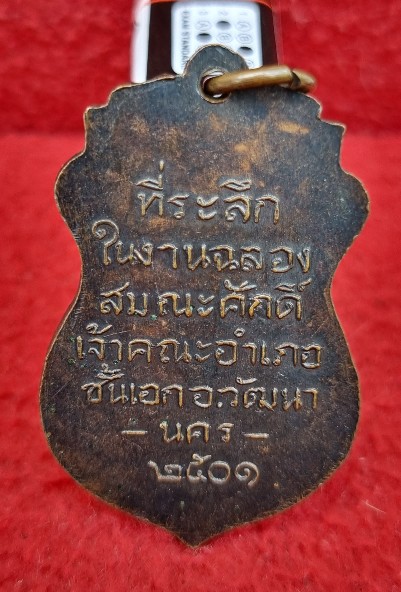 EXAM STANDARD
ที่ระลึก
ในงานฉลอง
สมณะศักดิ์
เจ้าคณะอำเภอ
ชั้นเอก อ.วัฒนา
- นคร -
๒๕๐๑